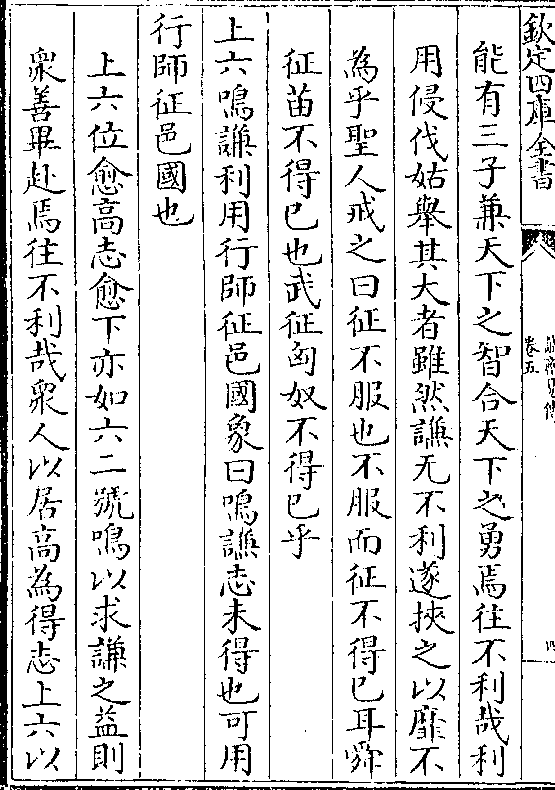 欽定四庫全書
卷五
四
能有三子兼天下之智合天下之勇焉往不利哉利
用侵伐姑舉其大者雖然謙无不利遂挾之以靡不
為乎聖人戒之曰征不服也不服而征不得已耳舜
征苗不得已也武征匈奴不得已乎
上六鳴謙利用行師征邑國象曰鳴謙志未得也可用
行師征邑國也
上六位愈高志愈下亦如六二號鳴以求謙之益則
衆善畢赴焉往不利哉衆人以居高為得志上六以